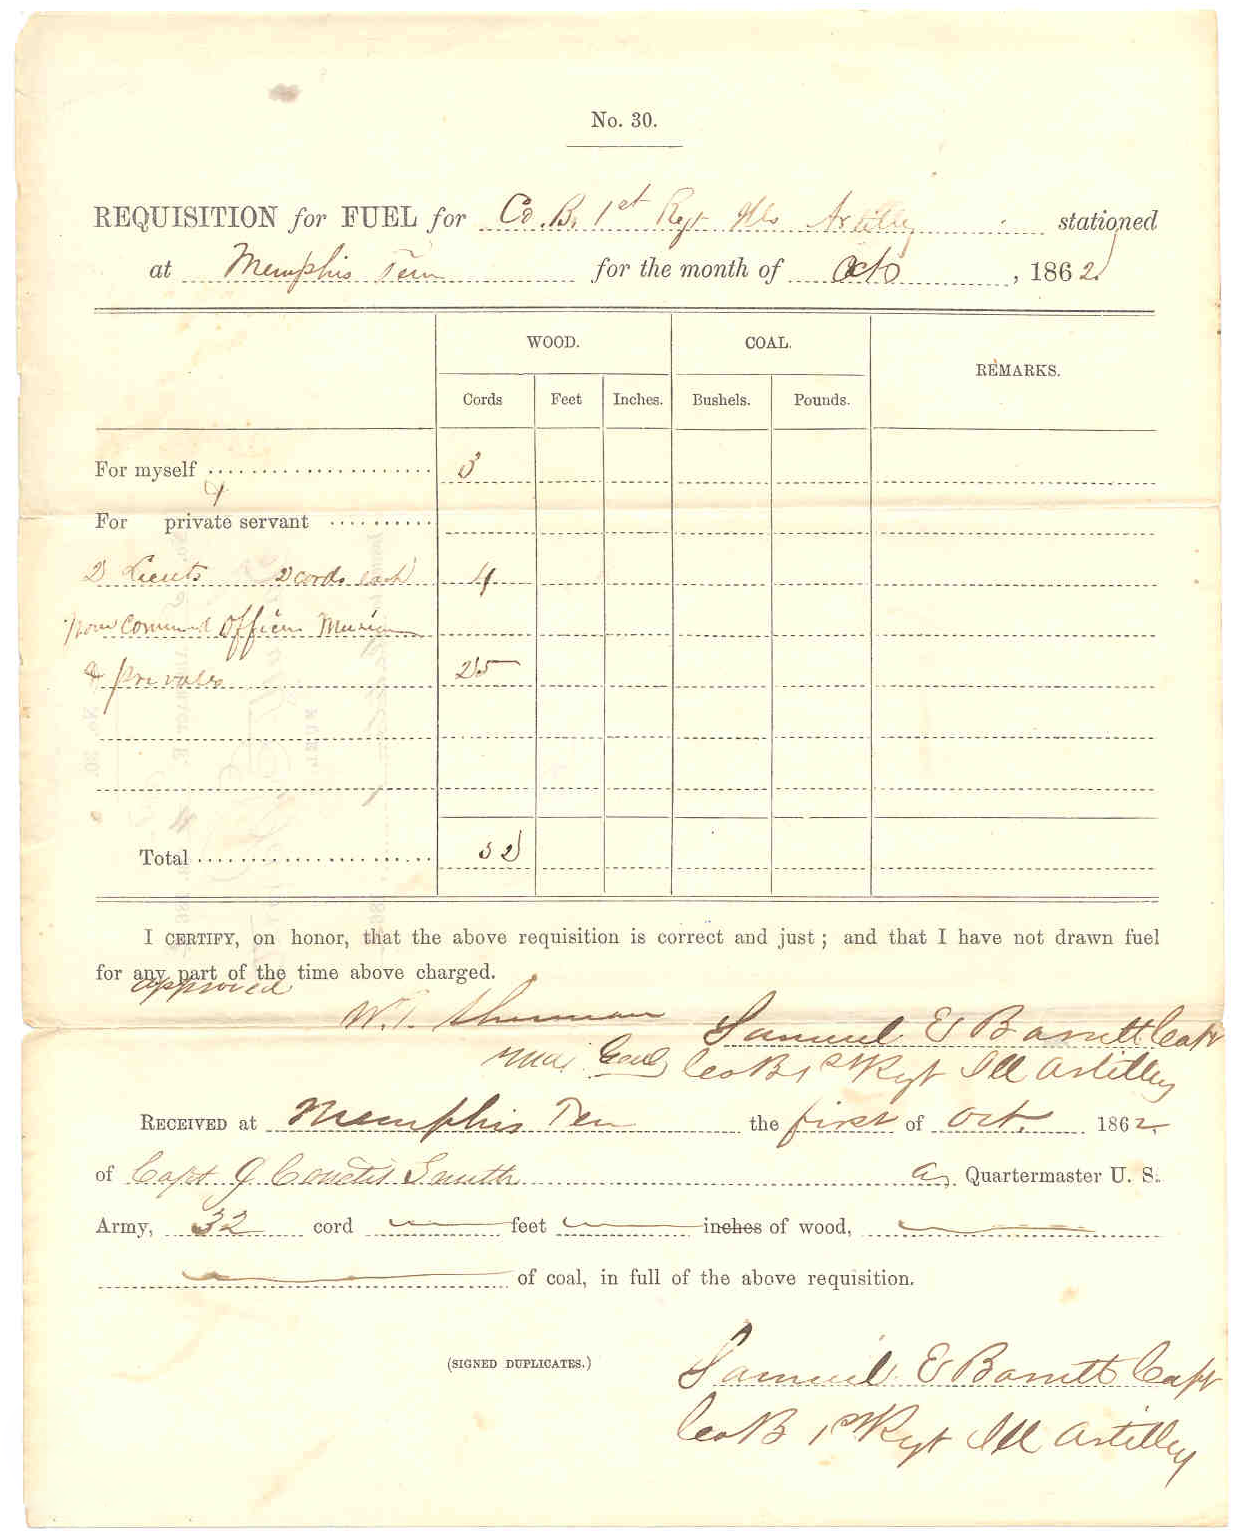 No. 30.
REQUISITION for FUEL for Co. B, 1st Regt Ills Artilley stationed
at Memphis Ten for the month of Octo, 1862
WOOD. COAL. REMARKS.
Cords Feet Inches. Bushels. Pounds.
For myself 3
For private servant
2 Lieuts 2 cords each 4
Officers
& privates 25
Total 32
I CERTIFY, on honor, that the above requisition is correct and just; and that I have not drawn fuel
for any part of the time above charged.
approved
W. T. Sherman
Maj Genl
Samuel E Barrett Capt
Co B 1st Regt Ill Artilley
RECEIVED at Memphis Ten the first of Oct. 1862
of Capt J Condit Smith as Quartermaster U. S.
Army, 32 cord feet inches of wood,
of coal, in full of the above requisition.
(SIGNED DUPLICATES.)
Samuel E Barrett Capt
Co B 1st Regt Ill Artilley